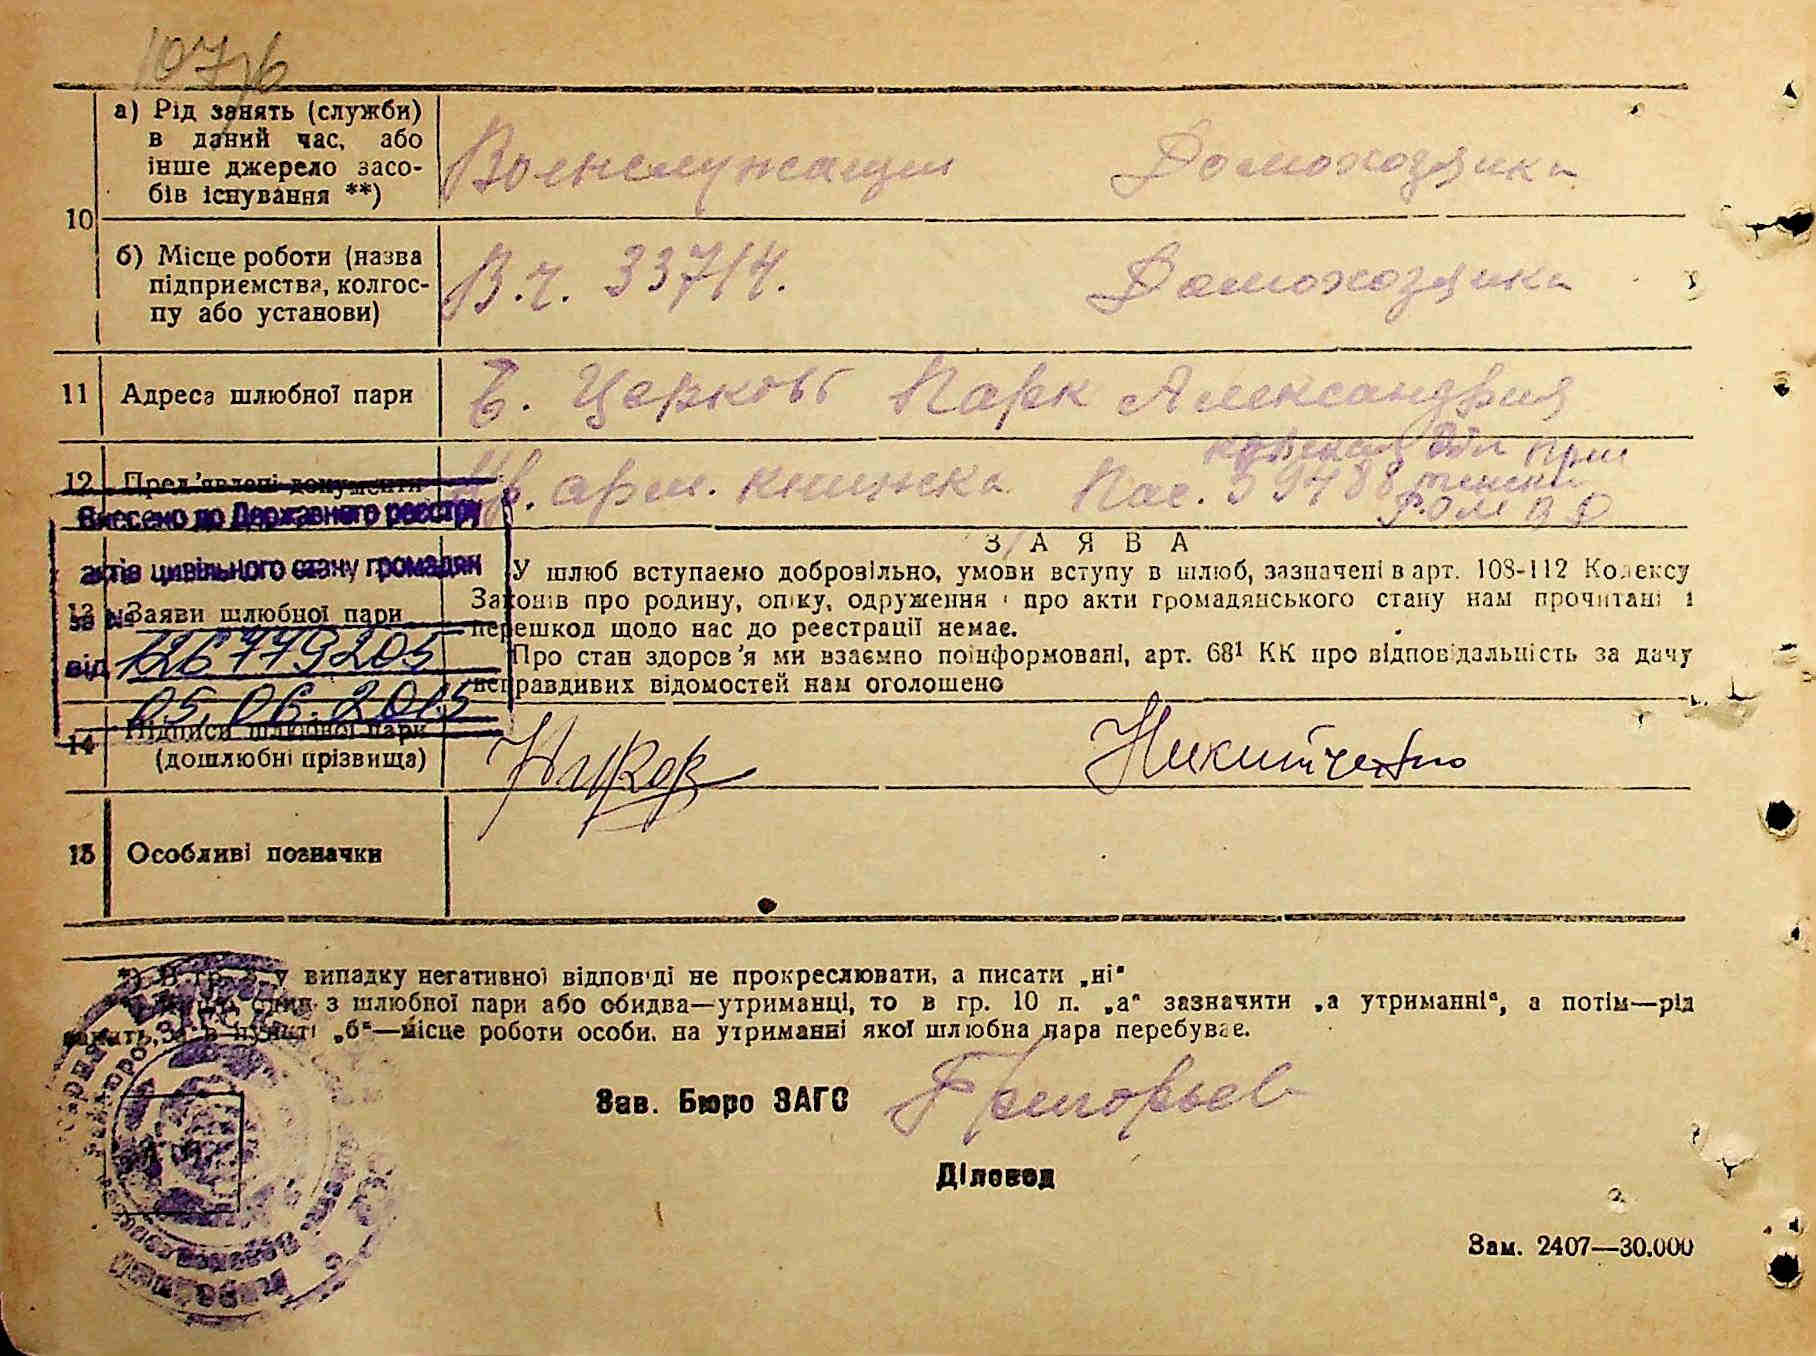 107/6
а) Рід занять (служби)
в даний час, або
інше джерело засо-
бів існування **)
Военслужащий Домохозяйка
10
б) Місце роботи (назва
підприємства, колгос-
пу або установи)
В.ч. 33714. Домохозяйка
11 Адреса шлюбної пари Б. Церковь Парк Александрия
12 Пред'явлені документи арм. книжка Пас. 59488
Внесено до Державного реєстру
актів цивільного стану громадян
за №
126779205
від
05.06.2015
13 Заяви шлюбної пари
ЗАЯВА
У шлюб вступаємо добровільно, умови вступу в шлюб, зазначені в арт. 108-112 Кодексу
Законів про родину, опіку, одруження і про акти громадянського стану нам прочитані і
перешкод щодо нас до реєстрації немає.
Про стан здоров'я ми взаємно поінформовані, арт. 68¹ КК про відповідальність за дачу
неправдивих відомостей нам оголошено
14 Підписи шлюбної пари
(дошлюбні прізвища)
Никитченко
15 Особливі позначки
*) В гр. 8 у випадку негативної відповіді не прокреслювати, а писати „ні"
один з шлюбної пари або обидва—утриманці, то в гр. 10 п. „а" зазначити „а утриманні", а потім—рід
занять, а в пункті „б"—місце роботи особи, на утриманні якої шлюбна пара перебуває.
Зав. Бюро ЗАГС Григорьев
Діловод
Зам. 2407—30.000